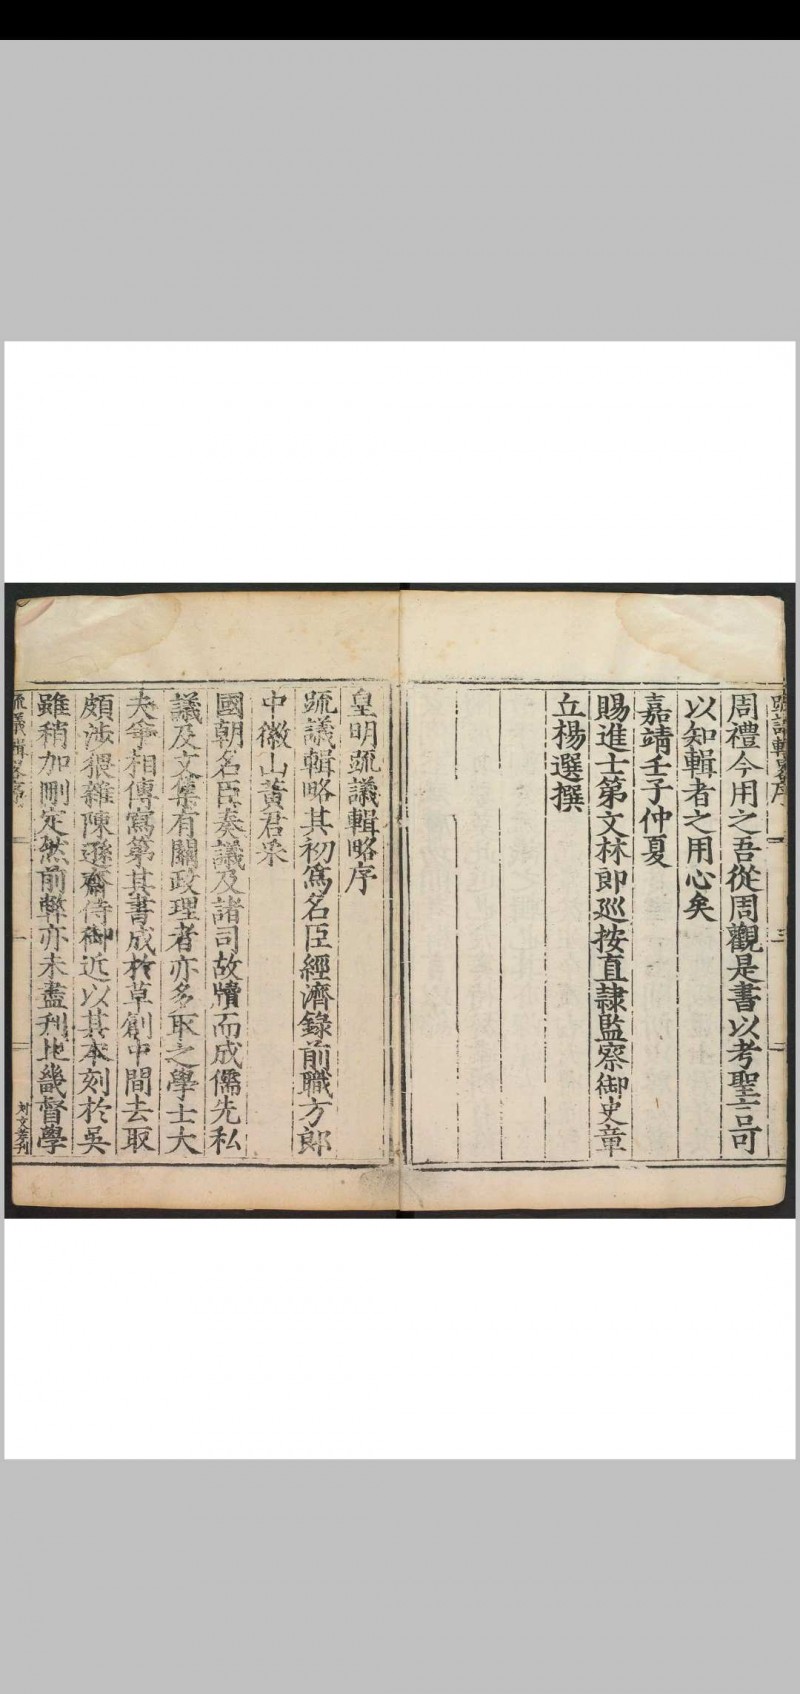 疏議輯畧序
三
周禮今用之吾從周觀是書以考聖言可
以知輯者之用心矣
嘉靖壬子仲夏
賜進士第文林郎巡按直隷監察御史章
丘楊選撰
皇明疏議輯略序
疏議輯略其初爲名臣經濟錄前職方郎
中徽山黃君采
國朝名臣奏議及諸司故牘而成儒先私
議及文集有關政理者亦多取之學士大
夫爭相傳寫第其書成於草創中間去取
頗涉猥雜陳遜齋侍御近以其本刻於吳
雖稍加刪定然前弊亦未盡刋北畿督學
疏議輯畧序
一